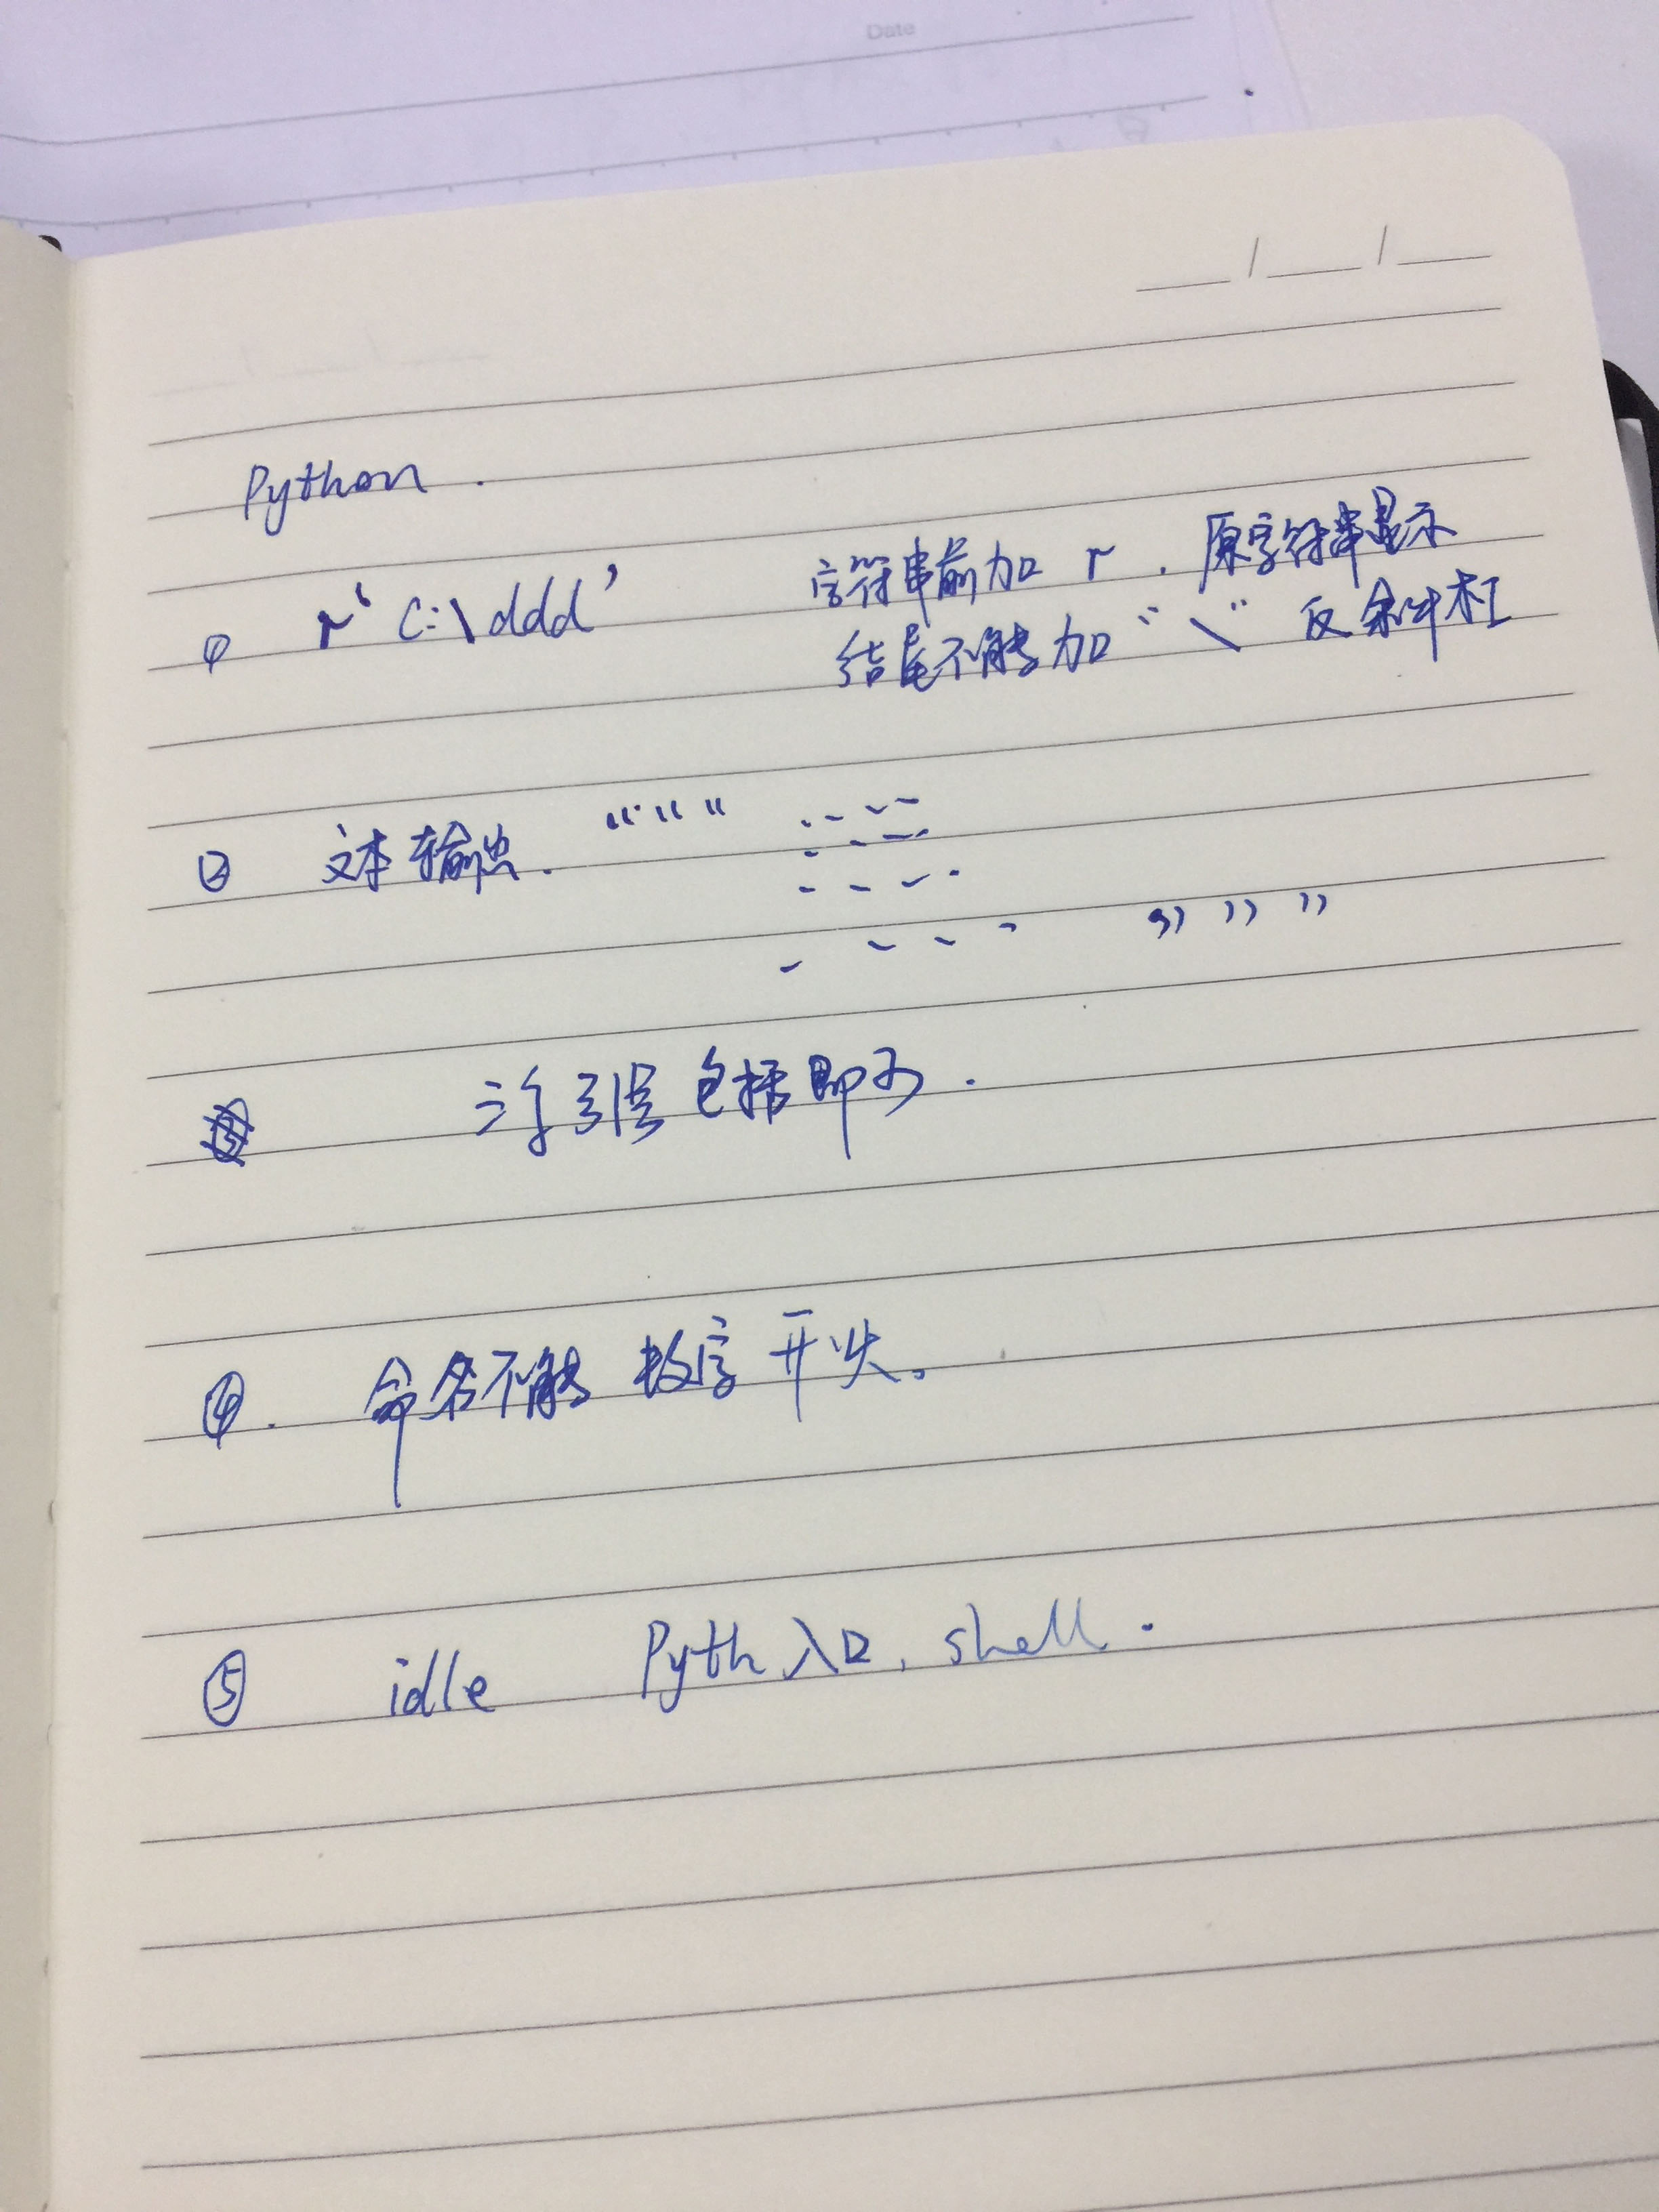 Date
Python.
① r'C:\ddd' 字符串前加 r. 原字符串显示
结尾不能加“\” 反斜杠
② 文本输出. “““
”””
三个引号包括即可.
④. 命名不能 数字 开头。
⑤ idle Pyth 入口, shell.